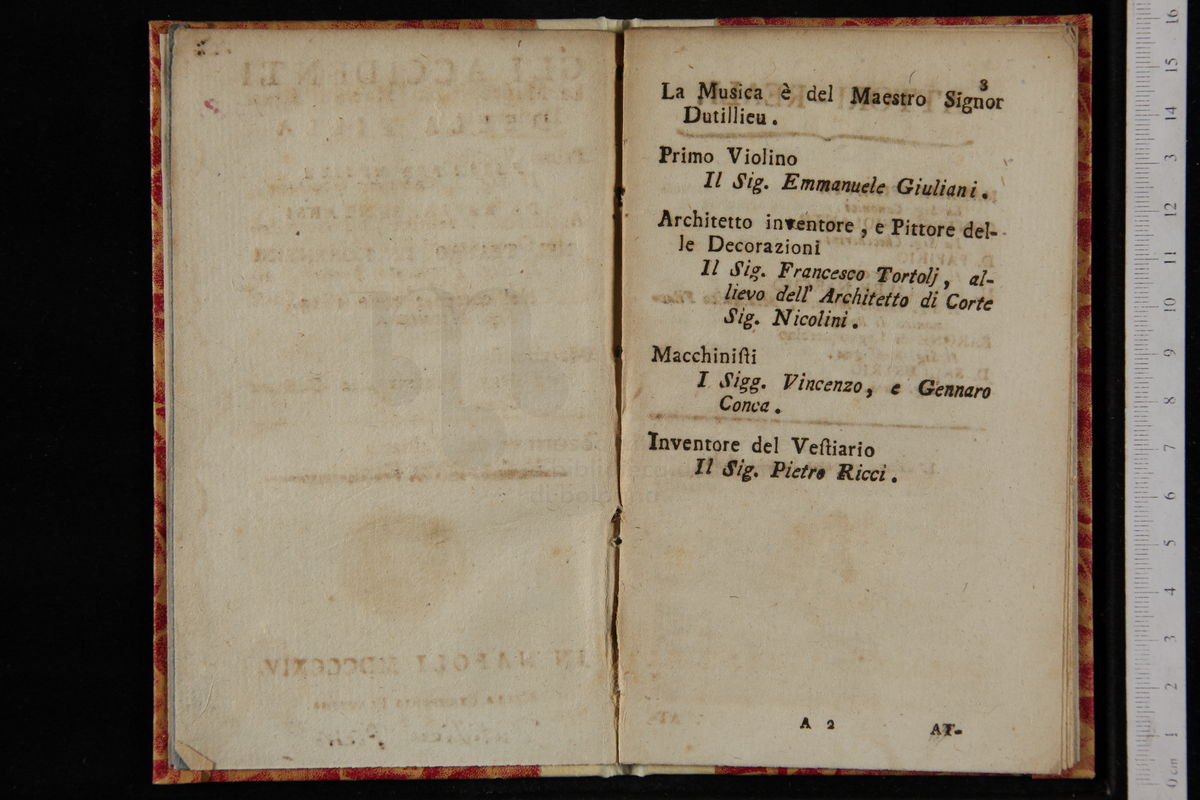 3
La Musica è del Maestro Signor
Dutillieu.
Primo Violino
Il Sig. Emmanuele Giuliani.
Architetto inventore, e Pittore del-
le Decorazioni
Il Sig. Francesco Tortolj, al-
lievo dell' Architetto di Corte
Sig. Nicolini.
Macchiniſti
I Sigg. Vincenzo, e Gennaro
Conca.
Inventore del Veſtiario
Il Sig. Pietro Ricci.
A 2
AT-
0 cm 1 2 3 4 5 6 7 8 9 10 11 12 13 14 15 16